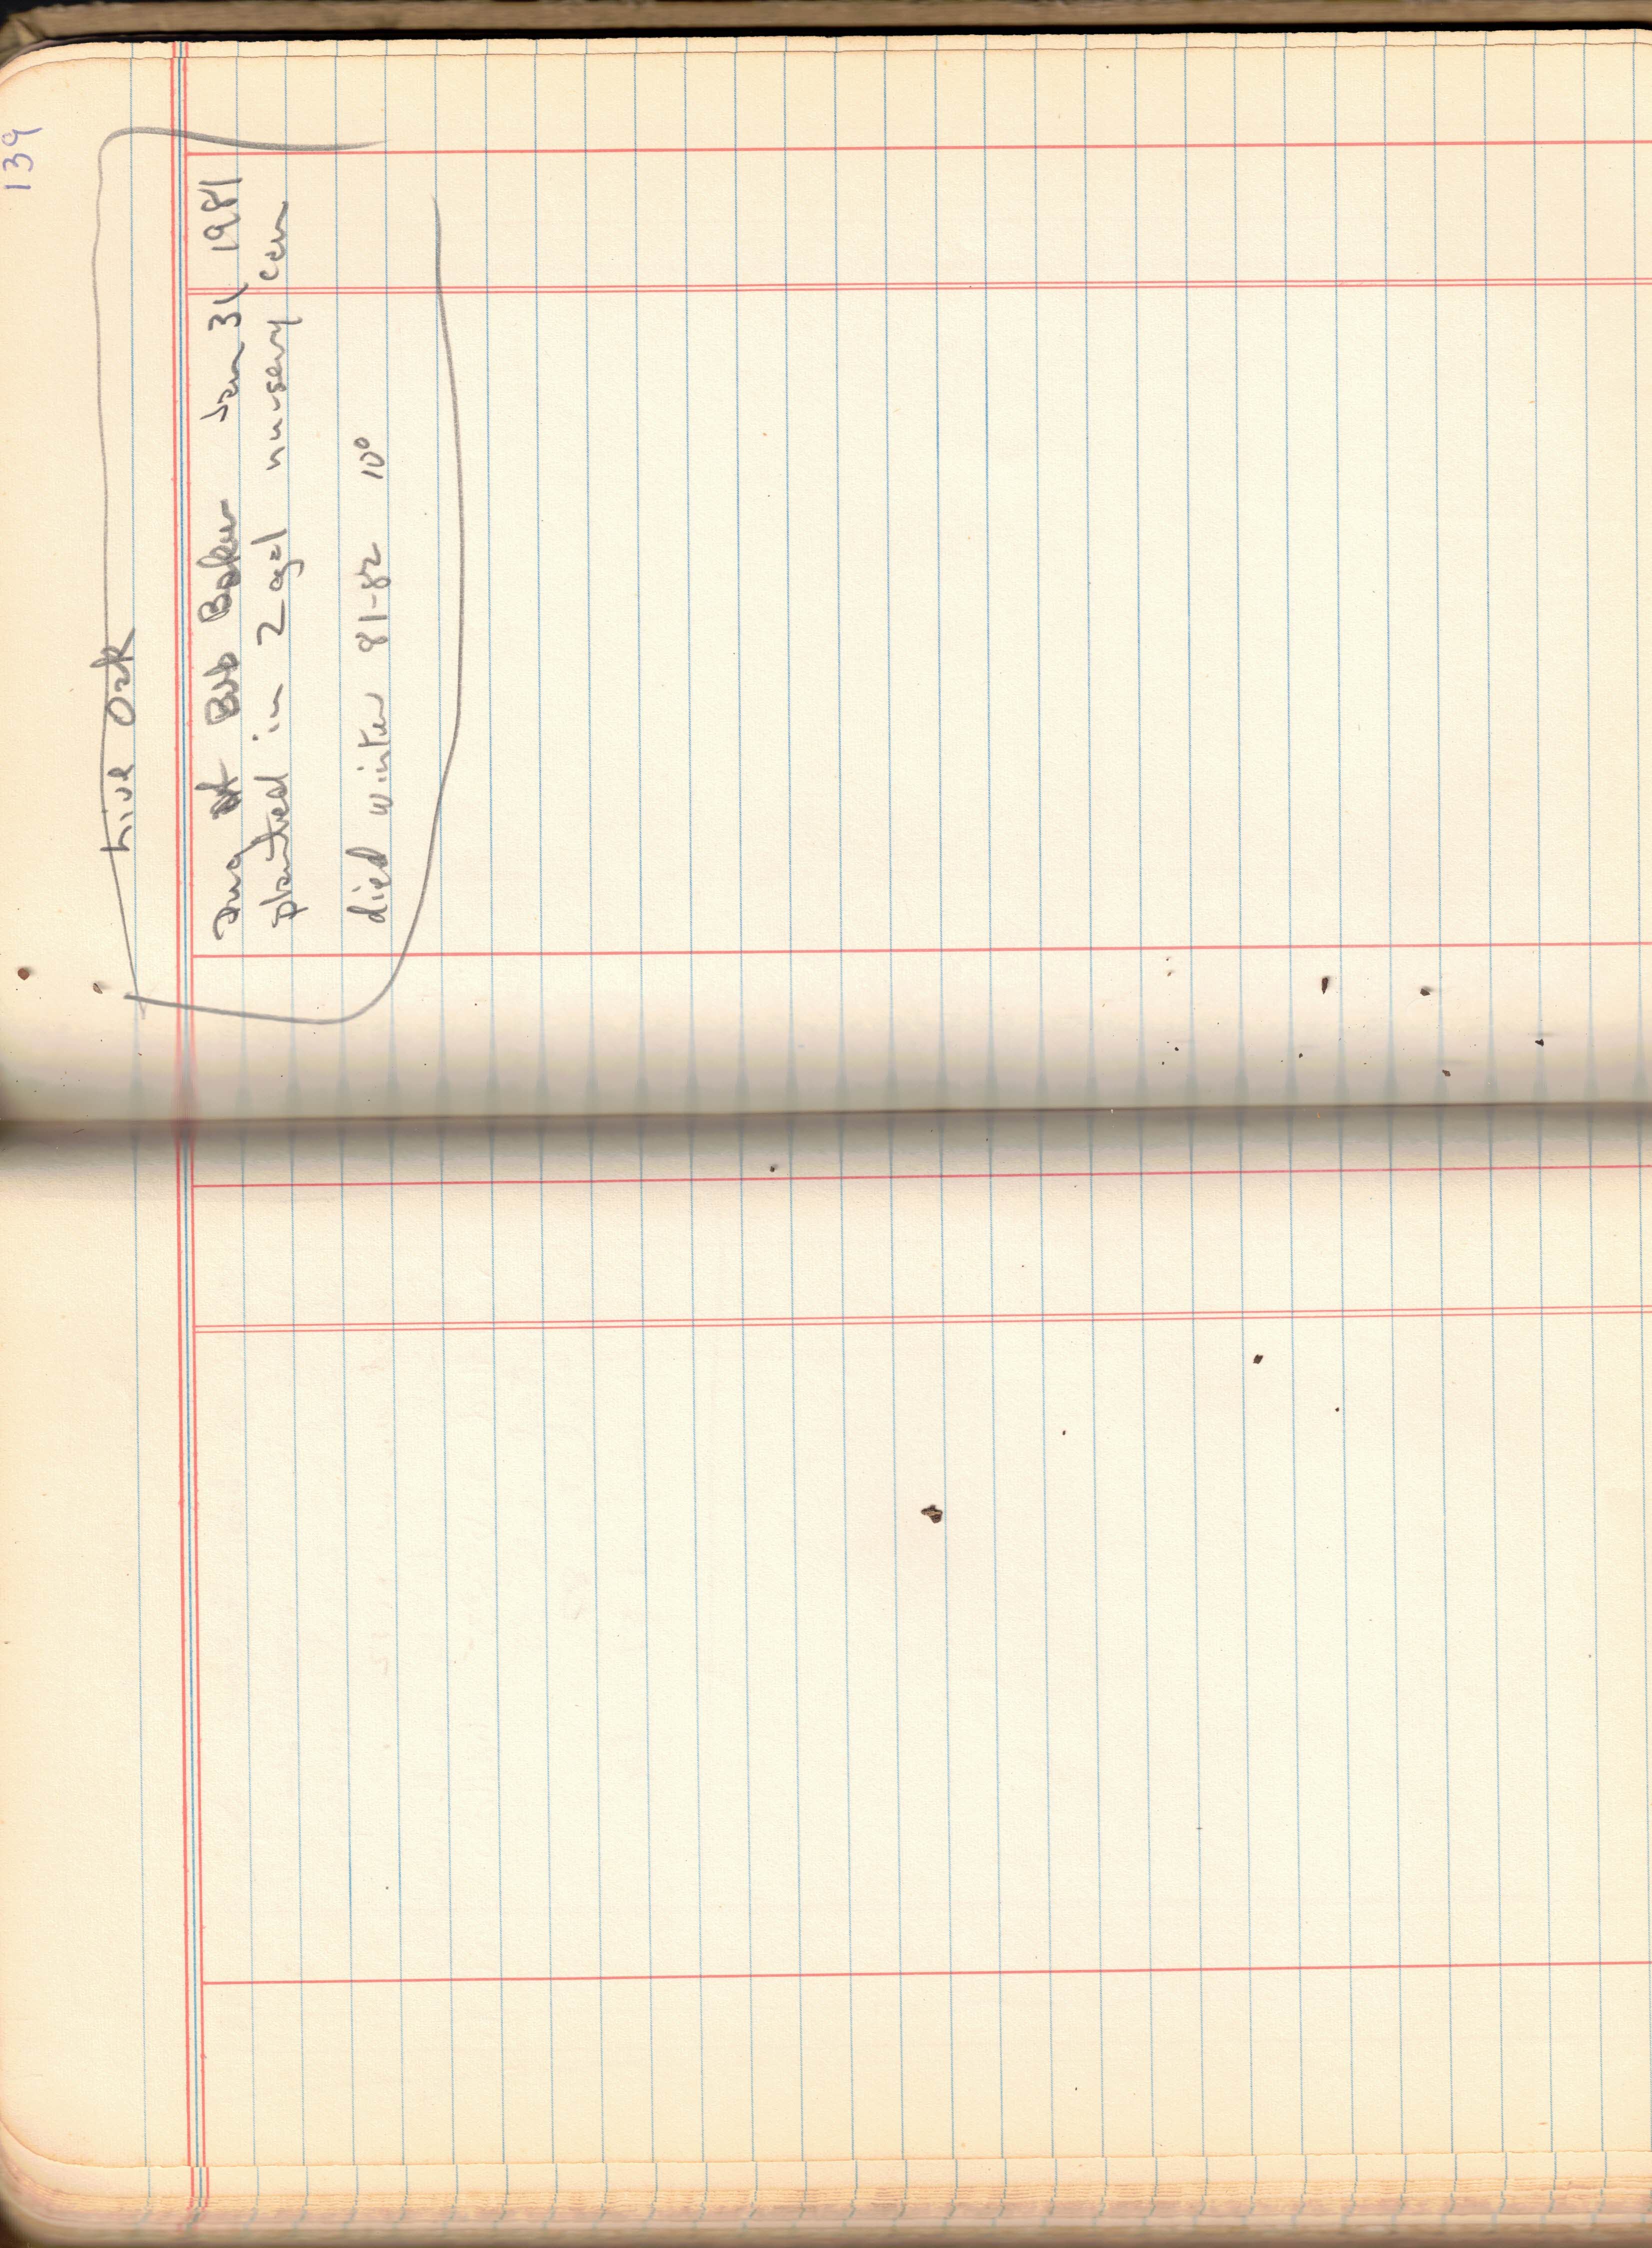 139
Live Oak
Dug at Bob Baker Jan 31 1981
planted in 2 gal nursery can
died winter 81-82 10°